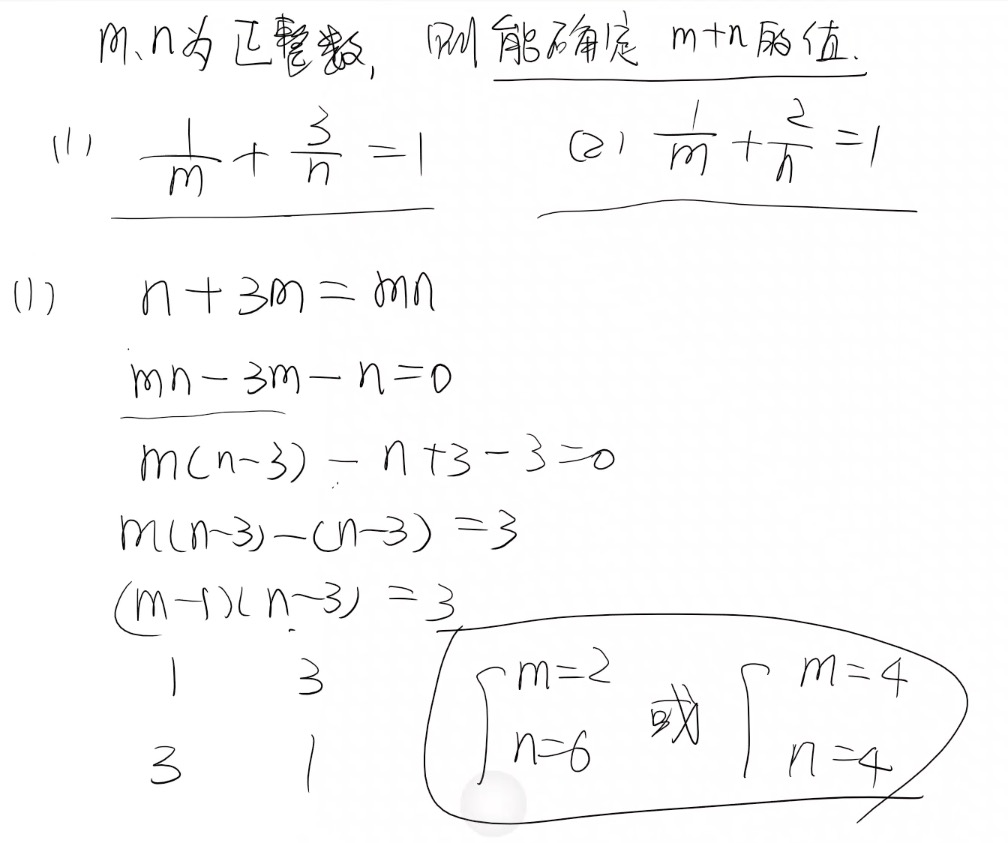 m、n为正整数, 则能确定 m+n的值.
(1) 1/m + 3/n = 1 (2) 1/m + 2/n = 1
(1) n+3m=mn
mn-3m-n=0
m(n-3)-n+3-3=0
m(n-3)-(n-3)=3
(m-1)(n-3)=3
1 3 { m=2 或 { m=4
3 1 n=6 n=4